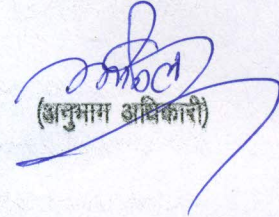 (अनुभाग अधिकारी)